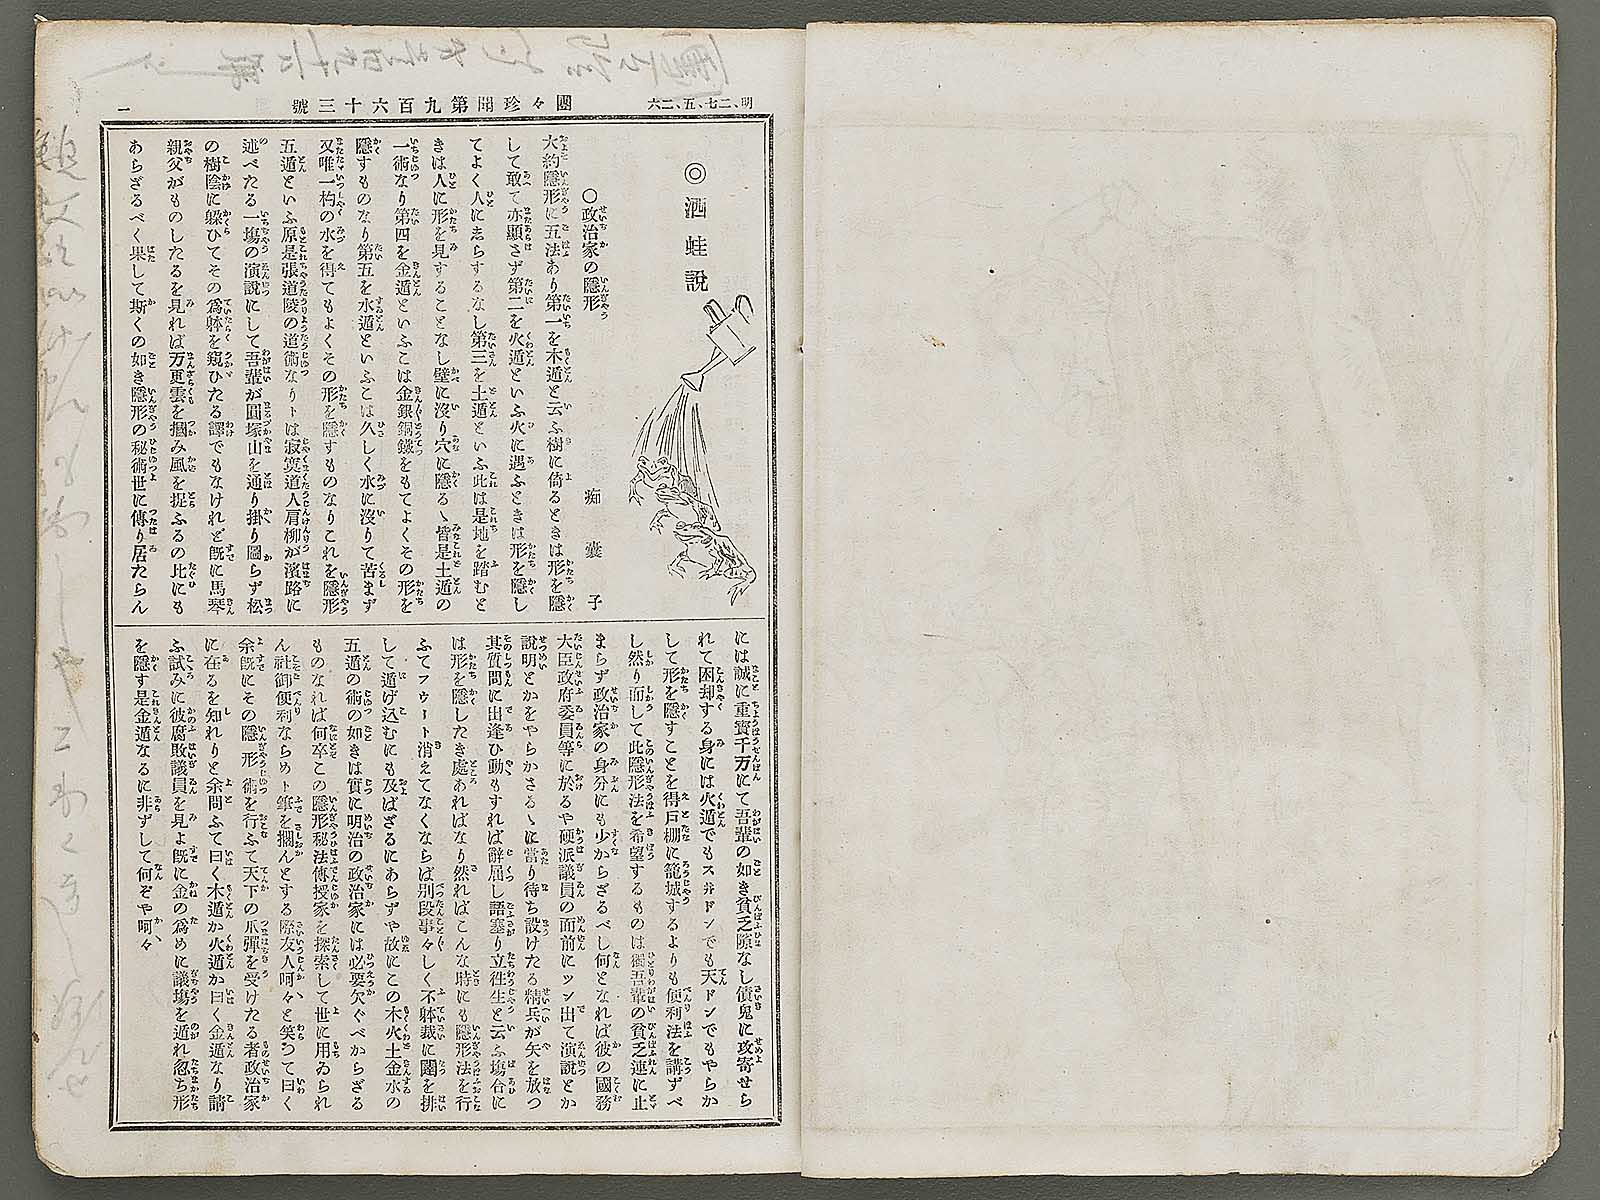 明、二七、五、二六
團々珍聞第九百六十三號
一
◎洒蛙說
○政治家の隱形
痴囊子
大約隱形に五法あり第一を木遁と云ふ樹に倚るときは形を隱
して敢て亦顯さず第二を火遁といふ火に遇ふときは形を隱し
てよく人に志らするなし第三を土遁といふ此は是地を踏むと
きは人に形を見することなし壁に沒り穴に隱るゝ皆是土遁の
一術なり第四を金遁といふこは金銀銅鐵をもてよくその形を
隱すものなり第五を水遁といふこは久しく水に沒りて苦まず
又唯一杓の水を得てもよくその形を隱すものなりこれを隱形
五遁といふ原是張道陵の道術なりトは寂寞道人肩柳が濱路に
述べたる一塲の演說にして吾輩が圓塚山を通り掛り圖らず松
の樹陰に躲ひてその爲躰を窺ひたる譯でもなけれど旣に馬琴
親父がものしたるを見れば万更雲を摑み風を捉ふるの比にも
あらざるべく果して斯くの如き隱形の秘術世に傳り居たらん
には誠に重寳千万にて吾輩の如き貧乏隙なし債鬼に攻寄せら
れて困却する身には火遁でもスヰドンでも天ドンでもやらか
して形を隱すことを得戶棚に籠城するよりも便利法を講ずべ
し然り而して此隱形法を希望するものは獨吾輩の貧乏連に止
まらず政治家の身分にも少からざるべし何となれば彼の國務
大臣政府委員等に於るや硬派議員の面前にツン出て演說とか
說明とかをやらかさるゝに當り待ち設けたる精兵が矢を放つ
其質問に出逢ひ動もすれば辭屈し語塞り立徃生と云ふ塲合に
は形を隱したき處あればなり然ればこんな時にも隱形法を行
ふてフウート消えてなくならば別段事々しく不躰裁に闥を排
して遁げ込むにも及ばざるにあらずや故にこの木火土金水の
五遁の術の如きは實に明治の政治家には必要欠ぐべからざる
ものなれば何卒この隱形秘法傳授家を探索して世に用ゐられ
ん社御便利ならめト筆を擱んとする際友人呵々と笑つて曰く
余旣にその隱形術を行ふて天下の爪彈を受けたる者政治家
に在るを知れりと余問ふて曰く木遁か火遁か曰く金遁なり請
ふ試みに彼腐敗議員を見よ旣に金の爲めに議塲を遁れ忽ち形
を隱す是金遁なるに非ずして何ぞや呵々